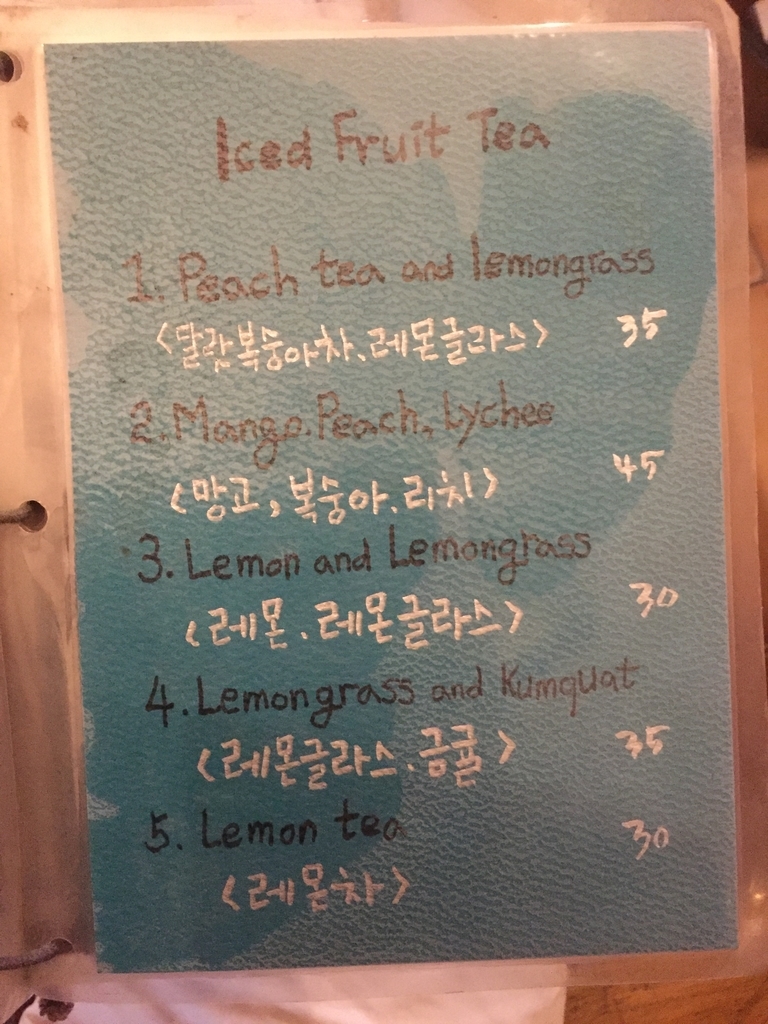 Iced Fruit Tea
1. Peach tea and lemongrass
<달랏복숭아차.레몬글라스> 35
2. Mango. Peach, Lychee
<망고, 복숭아.리치> 45
3. Lemon and Lemongrass
<레몬.레몬글라스> 30
4. Lemongrass and Kumquat
<레몬글라스.금귤> 35
5. Lemon tea
<레몬차> 30